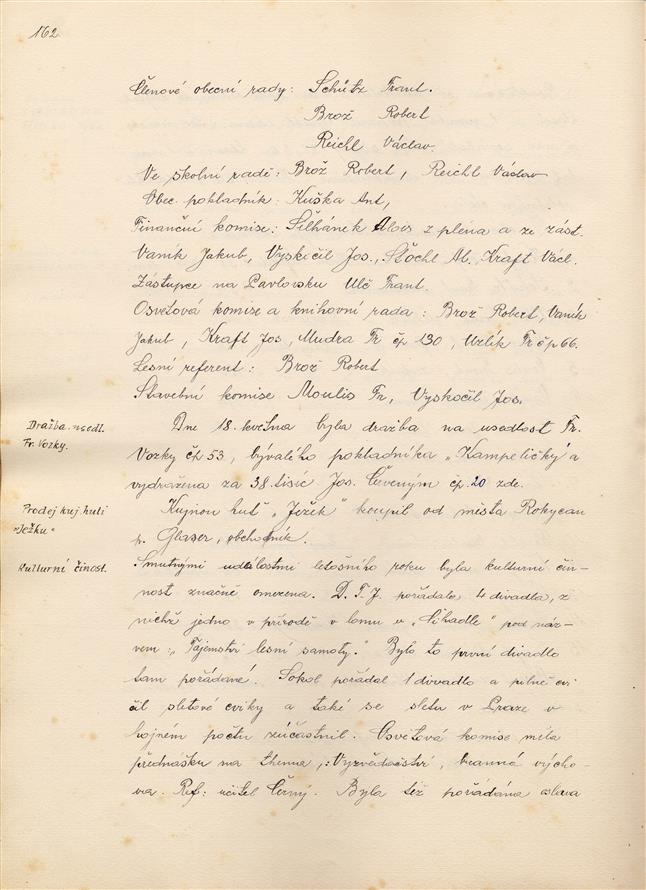 162
Členové obecní rady: Schütz Frant.
Brož Robert
Reichl Václav
Ve školní radě: Brož Robert, Reichl Václav
Obec. pokladník: Kuška Ant,
Finanční komise: Šilhánek Alois z plena a ze zást.
Vaník Jakub, Vyskočil Jos., Štochl Al. Kraft Václ.
Zástupce na Pavlovsku Ulč Frant.
Osvětová komise a knihovní rada: Brož Robert, Vaník
Jakub, Kraft Jos, Mudra Fr čp 130, Uzlík Fr čp 66.
Lesní referent: Brož Robert
Stavební komise Moulis Fr, Vyskočil Jos.
Dražba usedl.
Fr. Vozky.
Dne 18. května byla dražba na usedlost Fr.
Vozky čp 53, bývalého pokladníka „Kampeličky" a
vydražena za 38. tisíc Jos. Červeným čp. 20 zde.
Prodej kuj. huti
„Ježku"
Kujnou huť „Ježek" koupil od města Rokycan
p. Glaser, obchodník.
Kulturní činost.
Smutnými událostmi letošního roku byla kulturní čin-
nost značně omezena. D.T.J. pořádala 4 divadla, z
nichž jedno v přírodě v lomu u „Sihadle" pod náz-
vem: „Tajemství lesní samoty." Bylo to první divadlo
tam pořádané. Sokol pořádal 1 divvadlo a pilně cvi
čil sletové cviky a také se sletu v Praze v
hojném počtu zúčastnil. Osvětová komise měla
přednášku na thema,: Vyzvědačství, branná vycho-
va. Ref: učitel Černý. Byla též pořádána oslava